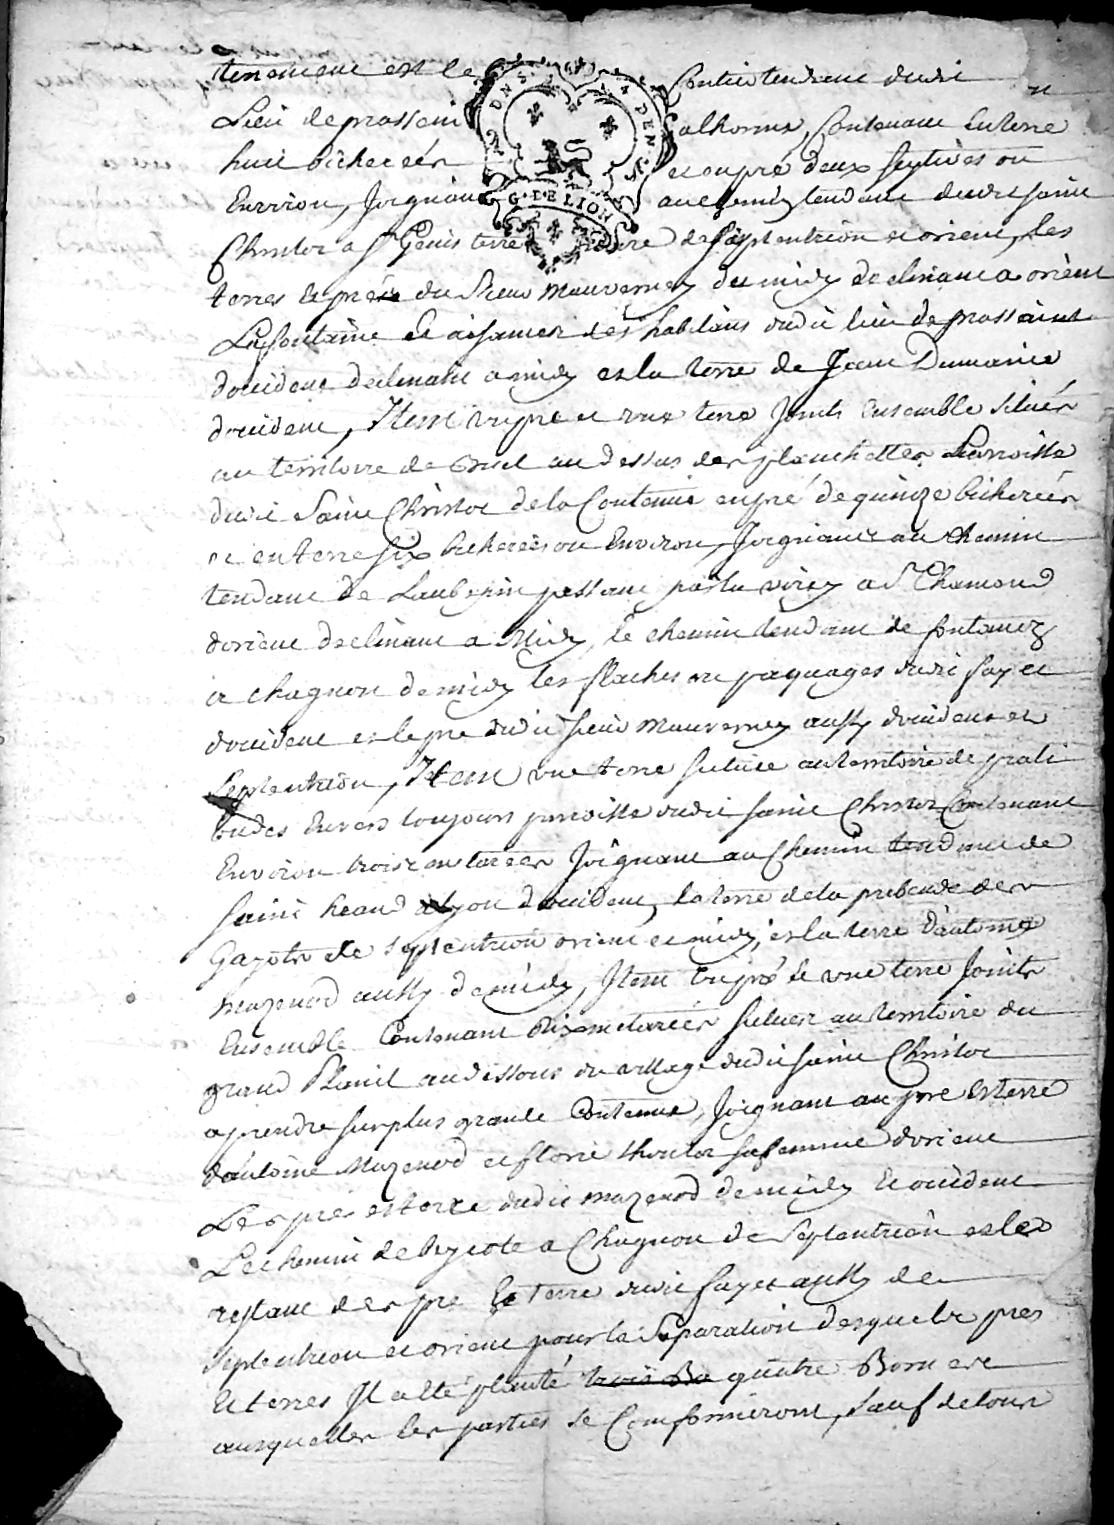 tenement est le Contier tendant dudit
Lieu de prassoin alhorme, Contenant En terre
huit bicherées et en pré deux septives ou
Environ, Joignant au chemin tendant dudit saint
Christot a St Genis terre de septentrion et orient, Les
terres et prés du Sieur Mauverney du midy declinant a orient
La fontaine et aisances des habitans dudit lieu de prassoint
doccident declinant a midy et la terre de Jean Dumarie
doccident, Item un pré et une terre Joints Ensemble Situés
au territoire de Cruel au dessus des planchettes Parroisse
dudit Saint Christot de la Contenue en pré de quinze bicherées
et en terre six bicherées ou Environ, Joignant au chemin
tendant de Laubepin passant par la virey a St Chamond
dorient declinant a Midy, le chemin tendant de fontanez
a chagnon de midy les flaches ou paquages dudit fayet
doccident et le pré dudit Sieur Mauverney aussy doccident et
Septentrion, Item une terre Scituée au territoire de prati
budes Envers toujours parroisse dudit Saint Christot Contenant
Environ trois metarées Joignant au Chemin tendant de
Saint heand a Lyon doccident, la terre de la prebende des
Gayots de septentrion orient et midy, et la terre d'antoine
mazenod aussy de midy, Item un pré et une terre Joints
Ensemble Contenant Dix metarées Situés au territoire du
grand Planil au dessous du village dudit saint Christot
a prendre sur plus grande Contenue, Joignant au pré et terre
d'antoine Mazenod et florie thoulot sa femme dorient
Les prés et terre dudit mazenod de midy et occident
Le chemin de a Chagnon de Septentrion et les
restant des pré et terre dudit fayet aussy de
septentrion et orient pour la Separation desquels prés
et terres Il a été planté trois Bo quatre Bornes
auxquelles les parties se Conformeront, Sauf de tous
G. DE LION